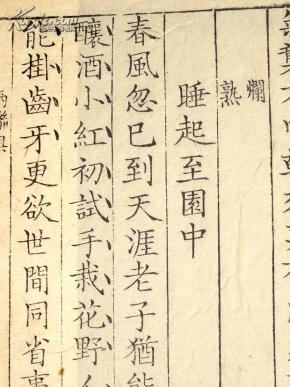 爛
熟
睡起至園中
春風忽巳到天涯老子猶能
釀酒小紅初試手栽花野人
能掛齒牙更欲世間同省事